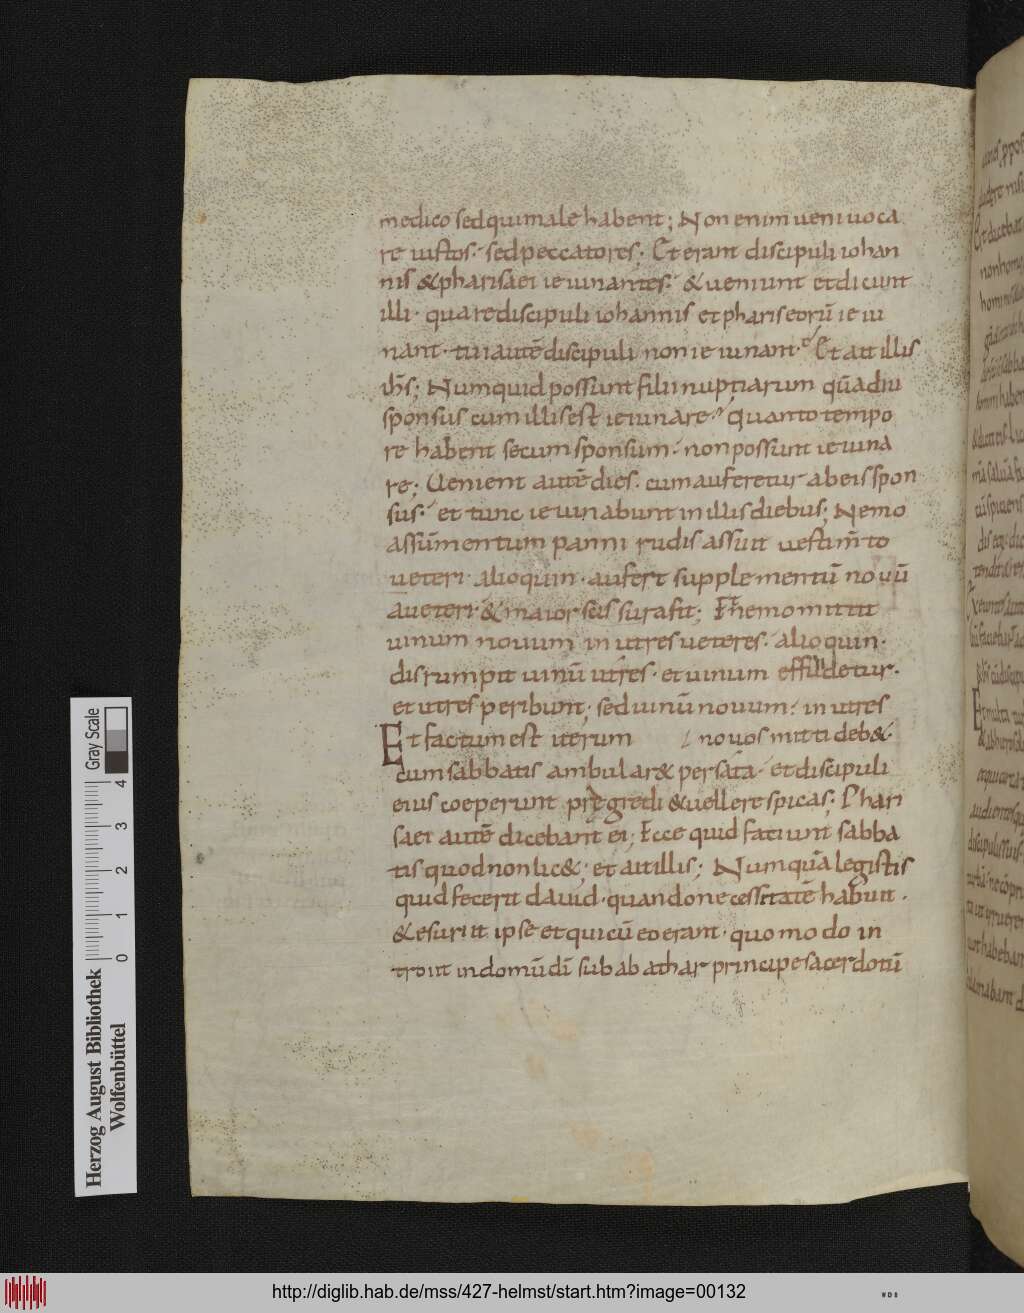 medico sed qui male habent; Non enim ueni uoca
re iustos· sed peccatores; Et erant discipuli iohan
nis & pharisaei ieiunantes· & ueniunt et dicunt
illi· quare discipuli iohannis et phariseorū ieiu
nant· tui autē discipuli non ieiunant· Et ait illis
ih̄s; Numquid possunt filii nuptiarum quādiu
sponsus cum illis est ieiunare· Quanto tempo
re habent secum sponsum· non possunt ieiuna
re; Uenient autē dies· cum auferetur ab eis spon
sus· et tunc ieiunabunt in illis diebus; Nemo
assūmentum panni rudis assuit uestim̄to
ueteri· alioquin· aufert supplementū nouū
a ueteri· & maior scissura fit; Et nemo mittit
uinum nouum in utres ueteres· alioquin·
disrumpit uinū utres· et uinum effūdetur·
et utres peribunt; sed uinū nouum· in utres
Et factum est iterum / nouos mitti deb&·
cum sabbatis ambular& per sata· et discipuli
eius coeperunt pręgredi & uellere spicas; Phari
saei autē dicebant ei; Ecce quid faciunt sabba
tis quod non lic&; et ait illis; Numquā legistis
quid fecerit dauid· quando necessitatē habuit·
& esuriit ipse et qui cū eo erant· quomodo in
troiit in domū dī sub abiathar principe sacerdotū
Gray Scale
4
3
2
1
0
Herzog August Bibliothek
Wolfenbüttel
http://diglib.hab.de/mss/427-helmst/start.htm?image=00132